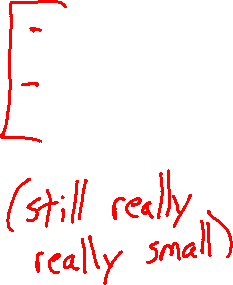 (still really
really small)